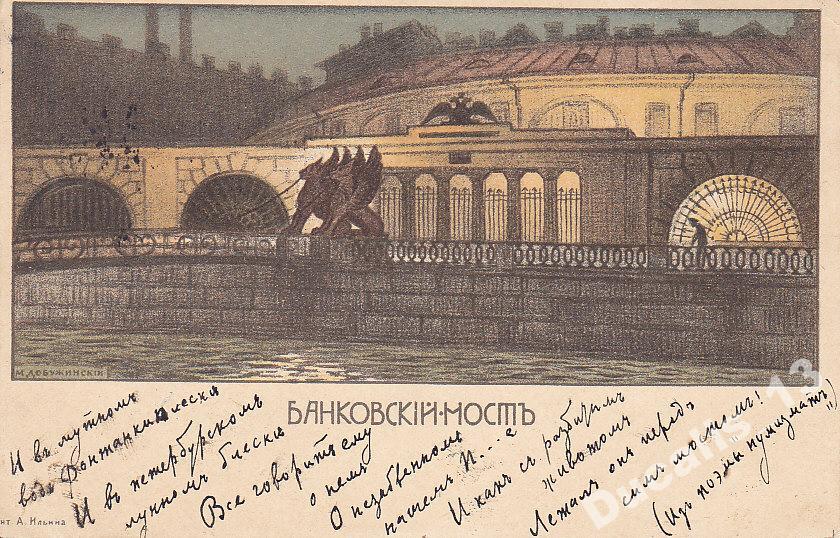 М. ДОБУЖИНСКІЙ
БАНКОВСКІЙ·МОСТЪ
И въ мутномъ
водъ Фонтанки блеска
И въ петербурскомъ
лунномъ блеска
Все говоритъ ему
о немъ
О незабвенномъ
нашемъ П...а
И какъ съ разбитымъ
животомъ
Лежалъ онъ передъ
симъ мостомъ!
(Изъ поэмы нумизматъ!)
нт А. Ильина
Ducalis_13